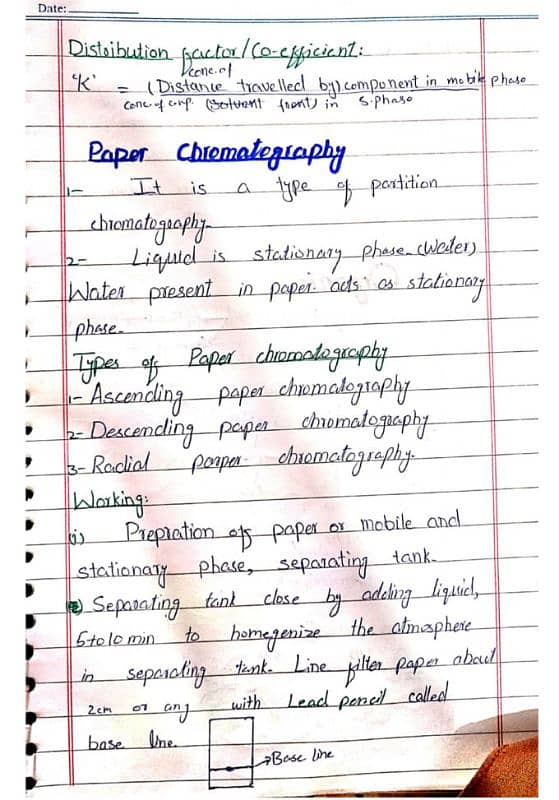 Date:
Distribution factor/Co-efficient:
conc. of
'K' = (Distance travelled by) component in mobile phase
conc. of comp. (solvent front) in S.phase
Paper Chromatography
1- It is a type of partition
chromatography.
2- Liquid is stationary phase (Water)
Water present in paper acts as stationary
phase.
Types of Paper chromatography
1- Ascending paper chromatography
2- Descending paper chromatography
3- Radial paper chromatography.
Working:
(i) Prepration of paper or mobile and
stationary phase, separating tank.
2) Separating tank close by adding liquid,
5 to 10 min to homegenize the atmosphere
in separating tank. Line filter paper about
2cm or any with Lead pencil called
base line.
→Base line